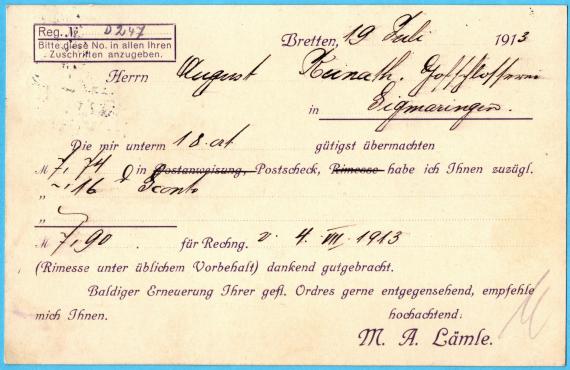 Reg. No. D 247
Bitte diese No. in allen Ihren
Zuschriften anzugeben.
Bretten, 19 Juli 1913
Herrn August Reinath, Hofschlosserei
in Sigmaringen.
Die mir unterm 18. crt gütigst übermachten
M 7,74 in Postanweisung, Postscheck, Rimesse habe ich Ihnen zuzügl.
" –,16 Sconto
"
M 7,90 für Rechng. v. 4. VII. 1913
(Rimesse unter üblichem Vorbehalt) dankend gutgebracht.
Baldiger Erneuerung Ihrer gefl. Ordres gerne entgegensehend, empfehle
mich Ihnen. hochachtend:
M. A. Lämle.